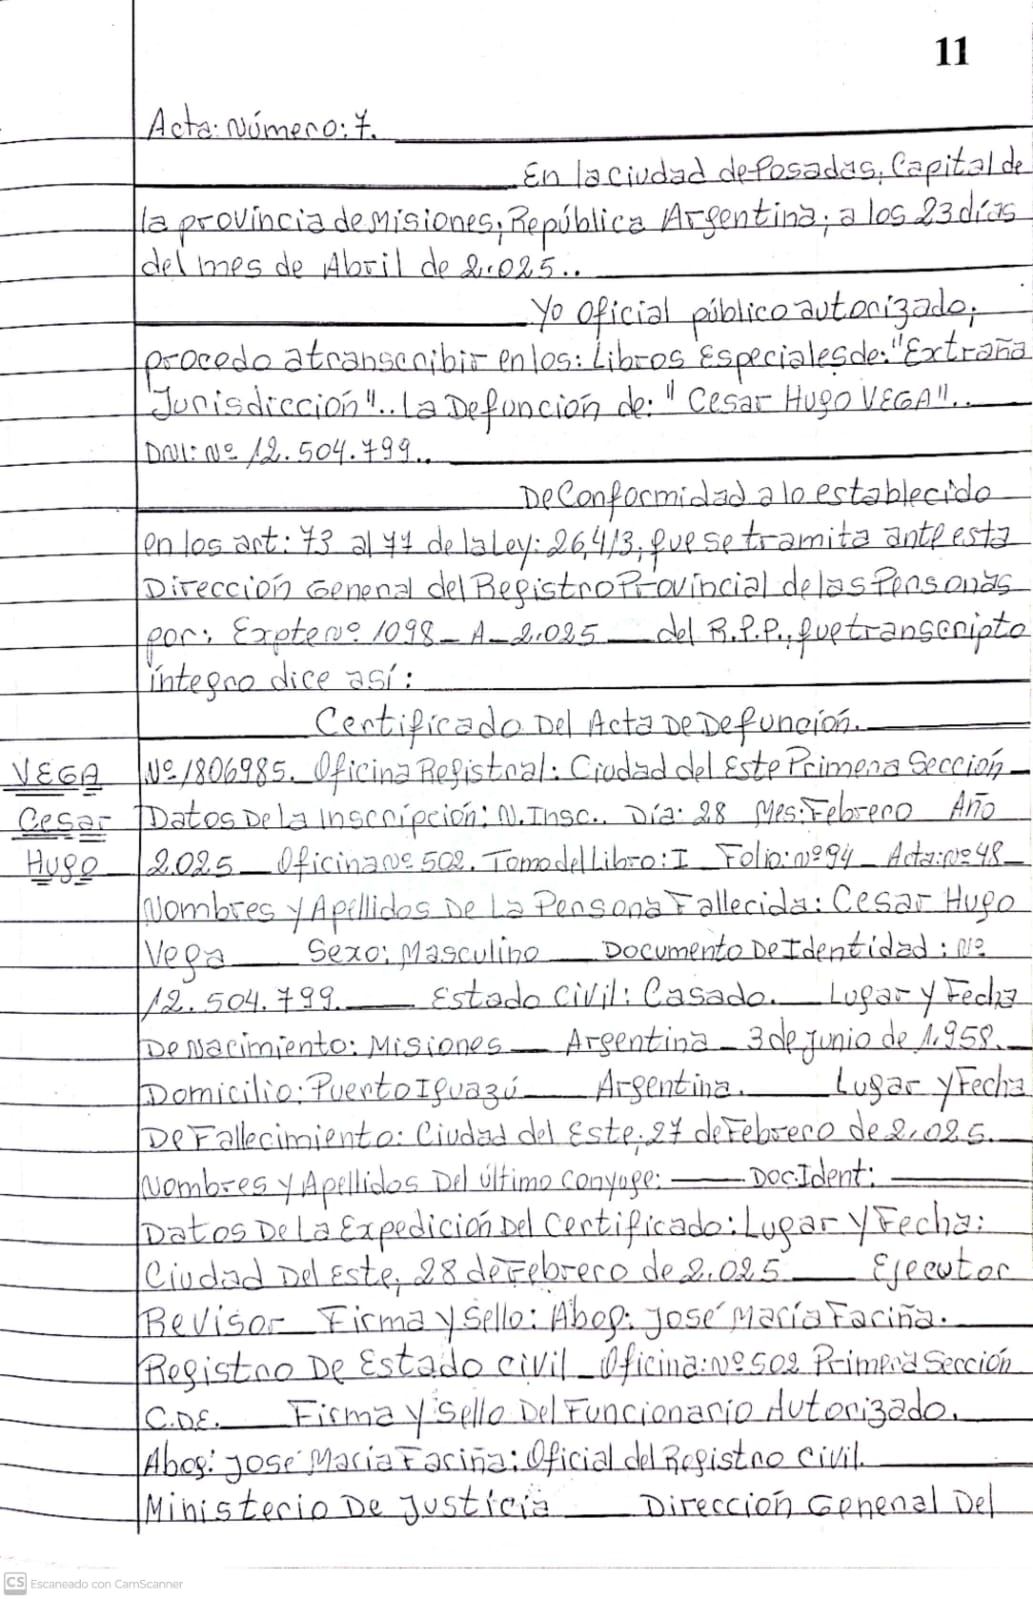 11
Acta: Número: 7.
En la ciudad de Posadas, Capital de
la provincia de Misiones, República Argentina, a los 23 días
del mes de Abril de 2.025..
Yo Oficial público autorizado,
procedo a transcribir en los: Libros Especiales de: "Extraña
Jurisdicción".. La Defunción de: "Cesar Hugo VEGA"..
DNI: Nº 12.504.799..
De Conformidad a lo establecido
en los art: 73 al 77 de la Ley: 26,413, que se tramita ante esta
Dirección General del Registro Provincial de las Personas
por: Expte nº 1098-A-2.025 del R.P.P., que transcripto
íntegro dice así:
Certificado Del Acta De Defunción.
VEGA Nº 1806985. Oficina Registral: Ciudad del Este Primera Sección
Cesar Datos De la Inscripción: N. Insc.. Día: 28 Mes: Febrero Año
Hugo 2.025 Oficina nº 502. Tomo del Libro: I Folio: nº 94 Acta: nº 48
Nombres y Apellidos De La Persona Fallecida: Cesar Hugo
Vega Sexo: Masculino Documento De Identidad: Nº
12.504.799. Estado Civil: Casado. Lugar y Fecha
De Nacimiento: Misiones Argentina 3 de junio de 1.958.
Domicilio: Puerto Iguazú Argentina. Lugar y Fecha
De Fallecimiento: Ciudad del Este, 27 de Febrero de 2.025.
Nombres y Apellidos Del último Conyuge: Doc. Ident:
Datos De La Expedición Del Certificado: Lugar y Fecha:
Ciudad Del Este, 28 de Febrero de 2.025 Ejecutor
Revisor Firma y Sello: Abog: José María Fariña.
Registro De Estado Civil Oficina: Nº 502 Primera Sección
C.D.E. Firma y Sello Del Funcionario Autorizado.
Abog: José María Fariña: Oficial del Registro Civil.
Ministerio De Justicia Dirección General Del
CS Escaneado con CamScanner